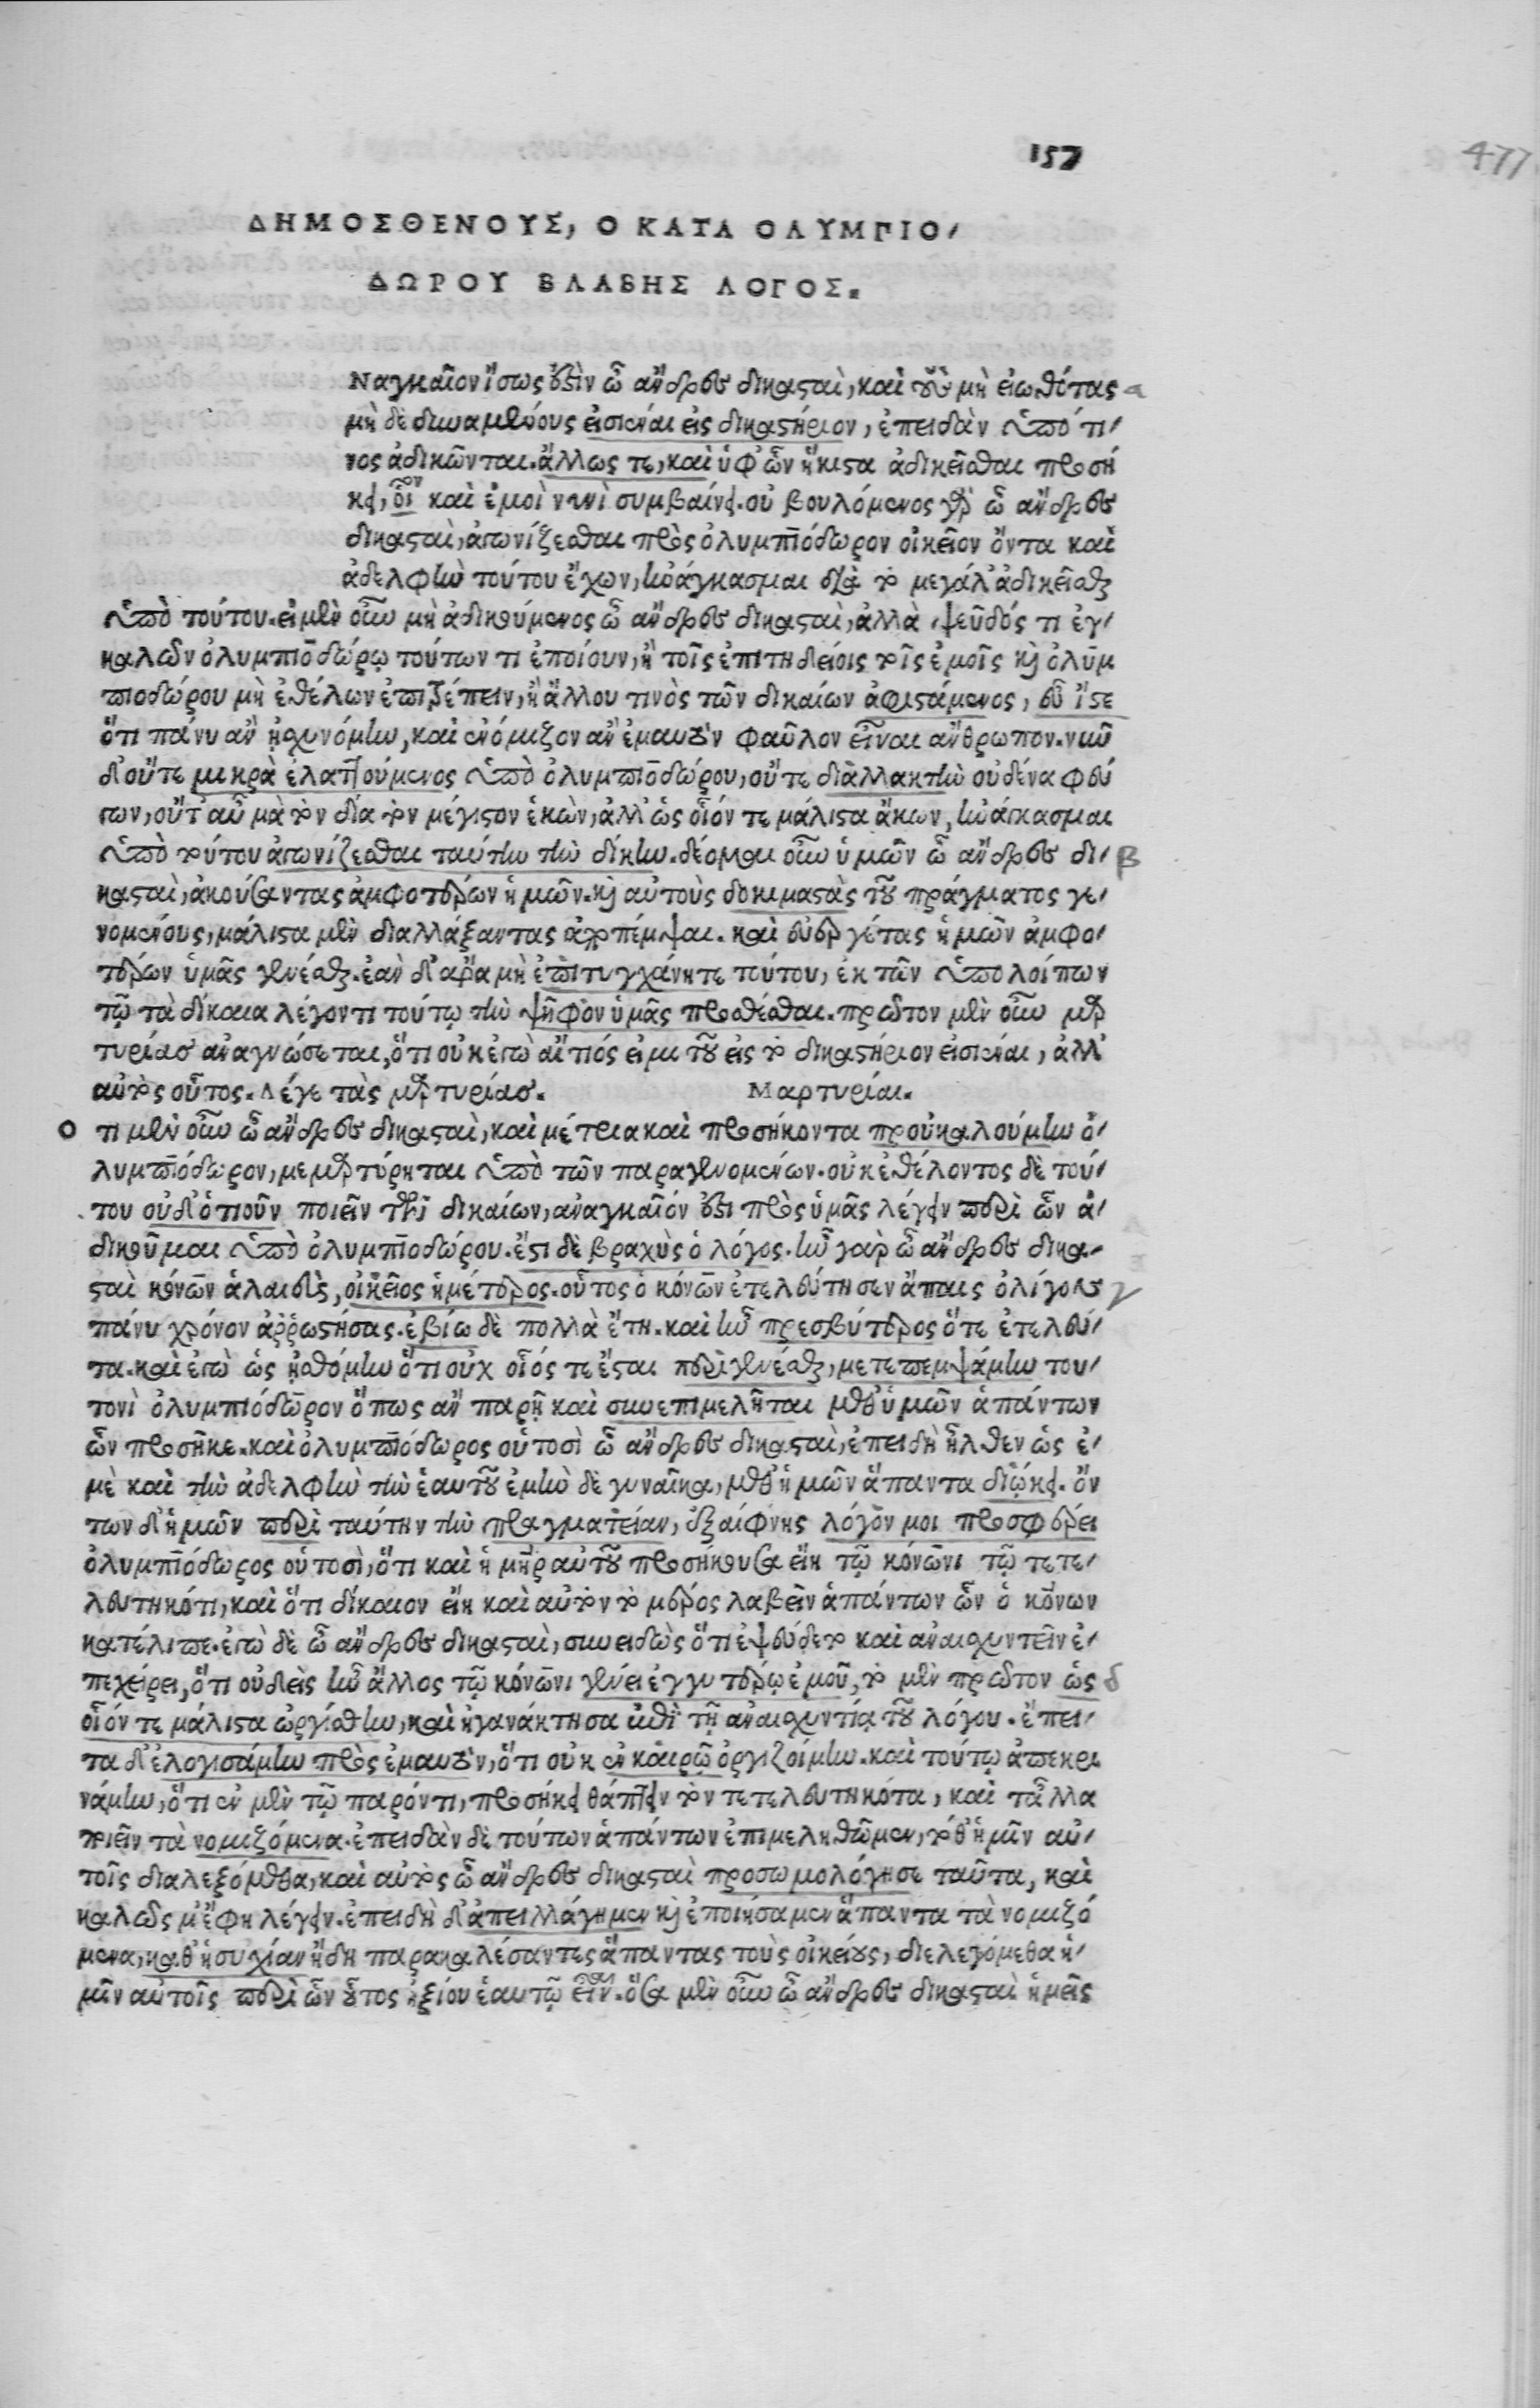 157
477
ΔΗΜΟΣΘΕΝΟΥΣ, Ο ΚΑΤΑ ΟΛΥΜΠΙΟ,
ΔΩΡΟΥ ΒΛΑΒΗΣ ΛΟΓΟΣ.
Ναγκαῖον ἴσως ἐστὶν ὦ ἄνδρες δικασταὶ, καὶ τοὺς μὴ εἰωθότας a
μὴ δὲ δυναμένους εἰσιέναι εἰς δικαστήριον, ἐπειδὰν ὑπό τι,
νος ἀδικῶνται. ἄλλως τε, καὶ ὑφ' ὧν ἥκιστα ἀδικεῖσθαι προσή
κει, οἷον καὶ ἐμοὶ νυνὶ συμβαίνει. οὐ βουλόμενος γὰρ ὦ ἄνδρες
δικασταὶ, ἀγωνίζεσθαι πρὸς ὀλυμπιόδωρον οἰκεῖον ὄντα καὶ
ἀδελφὴν τούτου ἔχων, ἠνάγκασμαι διὰ τὸ μεγάλ' ἀδικεῖσθαι
ὑπὸ τούτου. εἰ μὲν οὖν μὴ ἀδικούμενος ὦ ἄνδρες δικασταὶ, ἀλλὰ ψεῦδός τι ἐγ,
καλῶν ὀλυμπιοδώρῳ τούτων τι ἐποίουν, ἢ τοῖς ἐπιτηδείοις τοῖς ἐμοῖς καὶ ὀλυμ
πιοδώρου μὴ ἐθέλων ἐπιτρέπειν, ἢ ἄλλου τινὸς τῶν δικαίων ἀφιστάμενος, εὖ ἴστε
ὅτι πάνυ ἂν ᾐσχυνόμην, καὶ ἐνόμιζον ἂν ἐμαυτὸν φαῦλον εἶναι ἄνθρωπον. νῦν
δ' οὔτε μικρὰ ἐλαττούμενος ὑπὸ ὀλυμπιοδώρου, οὔτε διαλλακτὴν οὐδένα φεύ
γων, οὔτ' αὖ μὰ τὸν δία τὸν μέγιστον ἑκὼν, ἀλλ' ὡς οἷόν τε μάλιστα ἄκων, ἠνάγκασμαι
ὑπὸ τούτου ἀγωνίζεσθαι ταύτην τὴν δίκην. δέομαι οὖν ὑμῶν ὦ ἄνδρες δι, β
κασταὶ, ἀκούσαντας ἀμφοτέρων ἡμῶν. καὶ αὐτοὺς δοκιμαστὰς τοῦ πράγματος γε,
νομένους, μάλιστα μὲν διαλλάξαντας ἀποπέμψαι. καὶ εὐεργέτας ἡμῶν ἀμφο,
τέρων ὑμᾶς γενέσθαι. ἐὰν δ' ἄρα μὴ ἐπιτυγχάνητε τούτου, ἐκ τῶν ὑπολοίπων
τῷ τὰ δίκαια λέγοντι τούτῳ τὴν ψῆφον ὑμᾶς προσθέσθαι. πρῶτον μὲν οὖν μαρ
τυρίας ἀναγνώσεται, ὅτι οὐκ ἐγὼ αἴτιός εἰμι τοῦ εἰς τὸ δικαστήριον εἰσιέναι, ἀλλ'
αὐτὸς οὗτος. Λέγε τὰς μαρτυρίας. Μαρτυρίαι.
Ο τι μὲν οὖν ὦ ἄνδρες δικασταὶ, καὶ μέτρια καὶ προσήκοντα προὐκαλούμην ὀ,
λυμπιόδωρον, μεμαρτύρηται ὑπὸ τῶν παραγενομένων. οὐκ ἐθέλοντος δὲ τού,
του οὐδ' ὁτιοῦν ποιεῖν τῶν δικαίων, ἀναγκαῖόν ἐστι πρὸς ὑμᾶς λέγειν περὶ ὧν ἀ,
δικοῦμαι ὑπὸ ὀλυμπιοδώρου. ἔστι δὲ βραχὺς ὁ λόγος. ἦν γὰρ ὦ ἄνδρες δικα,
σταὶ κόνων ἁλαιεὺς, οἰκεῖος ἡμέτερος. οὗτος ὁ κόνων ἐτελεύτησεν ἄπαις ὀλίγον γ
πάνυ χρόνον ἀῤῥωστήσας. ἐβίω δὲ πολλὰ ἔτη. καὶ ἦν πρεσβύτερος ὅτε ἐτελεύ,
τα. καὶ ἐγὼ ὡς ᾐσθόμην ὅτι οὐχ οἷός τε ἔσται περιγενέσθαι, μετεπεμψάμην του,
τονὶ ὀλυμπιόδωρον ὅπως ἂν παρῇ καὶ συνεπιμελῆται μεθ' ὑμῶν ἁπάντων
ὧν προσῆκε. καὶ ὀλυμπιόδωρος οὑτοσὶ ὦ ἄνδρες δικασταὶ, ἐπειδὴ ἦλθεν ὡς ἐ,
μὲ καὶ τὴν ἀδελφὴν τὴν ἑαυτοῦ ἐμὴν δὲ γυναῖκα, μεθ' ἡμῶν ἅπαντα διῴκει. ὄν
των δ' ἡμῶν περὶ ταύτην τὴν πραγματείαν, ἐξαίφνης λόγον μοι προσφέρει
ὀλυμπιόδωρος οὑτοσὶ, ὅτι καὶ ἡ μήτηρ αὐτοῦ προσήκουσα εἴη τῷ κόνωνι τῷ τετε,
λευτηκότι, καὶ ὅτι δίκαιον εἴη καὶ αὐτὸν τὸ μέρος λαβεῖν ἁπάντων ὧν ὁ κόνων
κατέλιπε. ἐγὼ δὲ ὦ ἄνδρες δικασταὶ, συνειδὼς ὅτι ἐψεύδετο καὶ ἀναισχυντεῖν ἐ,
πεχείρει, ὅτι οὐδεὶς ἦν ἄλλος τῷ κόνωνι γένει ἐγγυτέρω ἐμοῦ, τὸ μὲν πρῶτον ὡς δ
οἷόν τε μάλιστα ὠργίσθην, καὶ ἠγανάκτησα ἐπὶ τῇ ἀναισχυντίᾳ τοῦ λόγου. ἔπει,
τα δ' ἐλογισάμην πρὸς ἐμαυτὸν, ὅτι οὐκ ἐν καιρῷ ὀργιζοίμην. καὶ τούτῳ ἀπεκρι
νάμην, ὅτι ἐν μὲν τῷ παρόντι, προσήκει θάπτειν τὸν τετελευτηκότα, καὶ τἆλλα
ποιεῖν τὰ νομιζόμενα. ἐπειδὰν δὲ τούτων ἁπάντων ἐπιμεληθῶμεν, τόθ' ἡμῖν αὐ,
τοῖς διαλεξόμεθα, καὶ αὐτὸς ὦ ἄνδρες δικασταὶ προσωμολόγησε ταῦτα, καὶ
καλῶς μ' ἔφη λέγειν. ἐπειδὴ δ' ἀπειλλάγημεν καὶ ἐποιήσαμεν ἅπαντα τὰ νομιζό
μενα, καθ' ἡσυχίαν ἤδη παρακαλέσαντες ἅπαντας τοὺς οἰκείους, διελεγόμεθα ἡ,
μῖν αὐτοῖς περὶ ὧν οὗτος ἠξίου ἑαυτῷ εἶναι. ὅσα μὲν οὖν ὦ ἄνδρες δικασταὶ ἡμεῖς